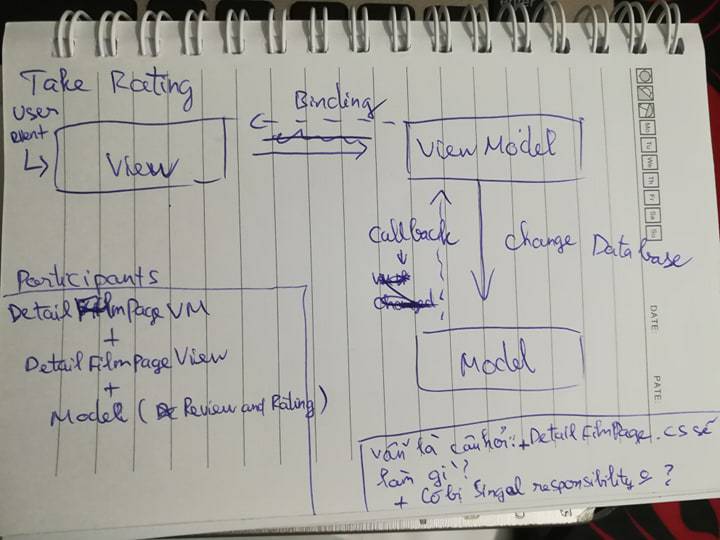 Take Rating
user
event
View
Binding
View Model
callback
change Database
Model
Participants
Detail FilmPage VM
+
Detail FilmPage View
+
Model ( Review and Rating)
vẫn là câu hỏi: + DetailFilmPage.cs sẽ
làm gì?
+ Có bị Singal responsibility ?
Mo
Tu
We
Th
Fr
Sa
Su
DATE:
PATE: